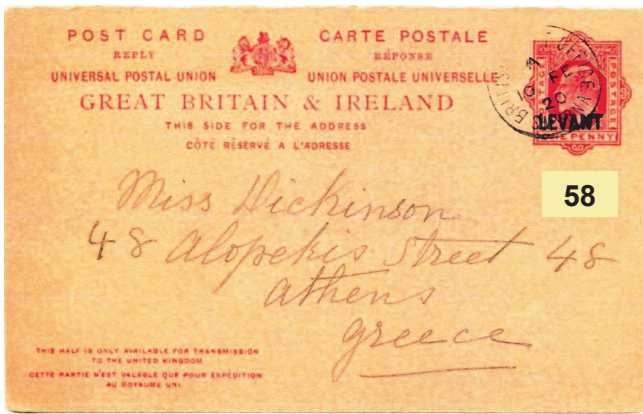 POST CARD CARTE POSTALE
REPLY RÉPONSE
UNIVERSAL POSTAL UNION UNION POSTALE UNIVERSELLE
GREAT BRITAIN & IRELAND
THIS SIDE FOR THE ADDRESS
CÔTÉ RÉSERVÉ A L'ADRESSE
BRITISH
FE
20
POSTAGE
LEVANT
ONE PENNY
58
Miss Dickinson
48 Alopekis Street 48
Athens
Greece
THIS HALF IS ONLY AVAILABLE FOR TRANSMISSION
TO THE UNITED KINGDOM.
CETTE PARTIE N'EST VALABLE QUE POUR EXPÉDITION
AU ROYAUME UNI.